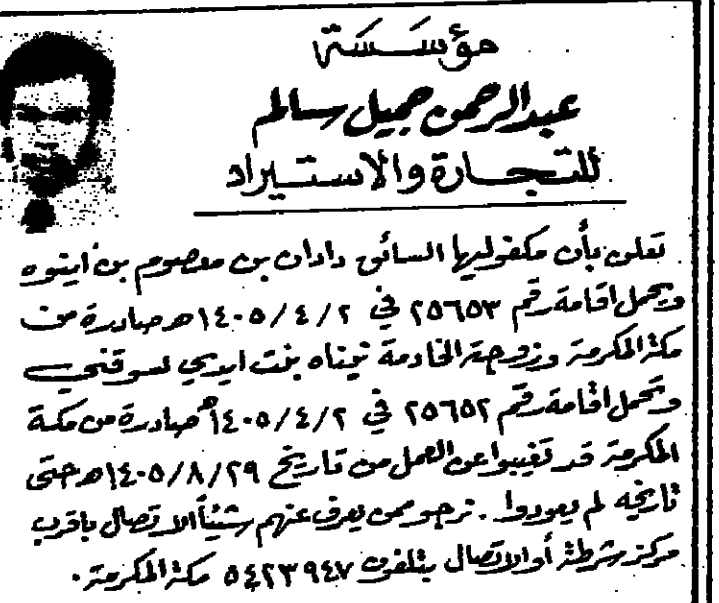 مؤسسة
عبدالرحمن جميل سالم
للتجارة والاستيراد
تعلن بأن مكفوليها السائق دادان بن معصوم بن ايتوه
ويحمل اقامة رقم ٢٥٦٥٣ في ١٤٠٥/٤/٢هـ صادرة من
مكة المكرمة وزوجته الخادمة تيناه بنت ايدي سوقنحي
وتحمل اقامة رقم ٢٥٦٥٢ في ١٤٠٥/٤/٢هـ صادرة من مكة
المكرمة قد تغيبوا عن العمل من تاريخ ١٤٠٥/٨/٢٩هـ حتى
تاريخه لم يعودوا . نرجو ممن يعرف عنهم شيئاً الاتصال باقرب
مركز شرطة أو الاتصال بتلفون ٥٤٢٣٩٤٧ مكة المكرمة .